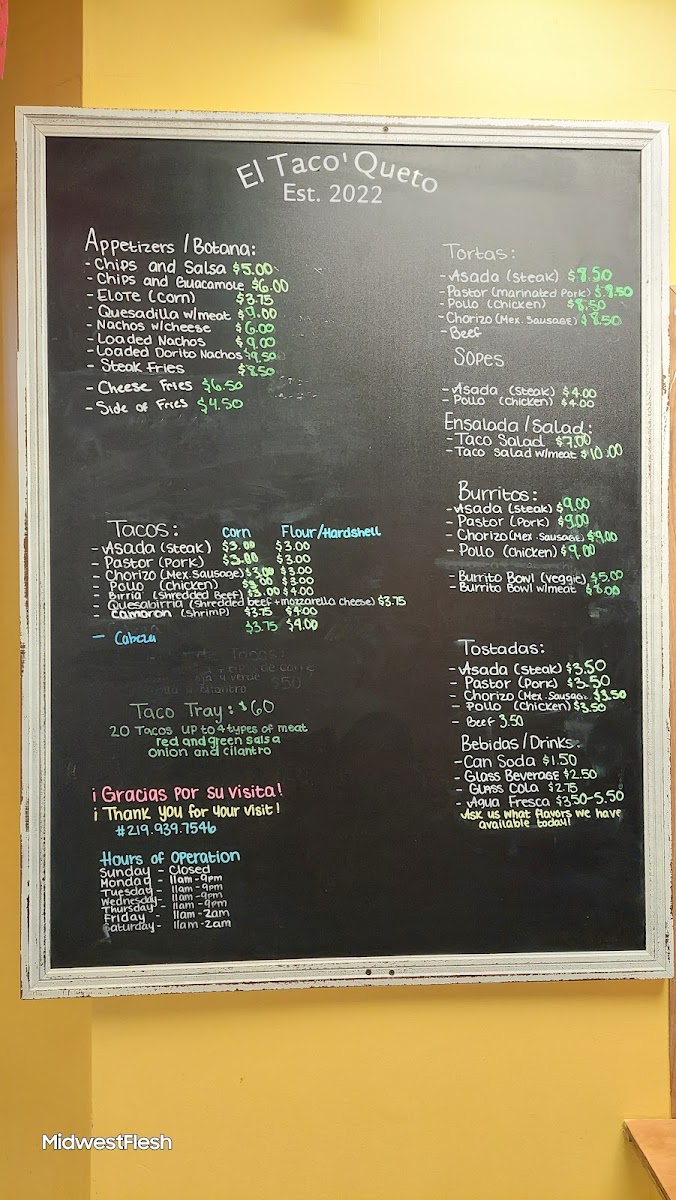 El Taco' Queto
Est. 2022
Appetizers / Botana:
- Chips and Salsa $5.00
- Chips and Guacamole $6.00
- Elote (corn) $3.75
Quesadilla w/meat $9.00
- Nachos w/cheese $6.00
- Loaded Nachos $9.00
- Loaded Dorito Nachos $9.50
- Steak Fries $8.50
- Cheese Fries $6.50
- Side of Fries $4.50
Tacos: Corn Flour/Hardshell
- Asada (steak) $3.00 $3.00
- Pastor (pork) $3.00 $3.00
- Chorizo (Mex. Sausage) $3.00 $3.00
- Pollo (chicken) $3.00 $3.00
- Birria (Shredded Beef) $3.00 $4.00
- Quesabirria (shredded beef + mozzarella cheese) $3.75
- Camaron (shrimp) $3.75 $4.00
$3.75 $9.00
-
Tacos:
de carne
y verde
$50
Taco Tray: $60
20 Tacos up to 4 types of meat
red and green salsa
onion and cilantro
¡Gracias por su visita!
¡Thank you for your visit!
#219.939.7546
Hours of Operation
Sunday - Closed
Monday - 11am-9pm
Tuesday - 11am-9pm
Wednesday - 11am-9pm
Thursday - 11am-9pm
Friday - 11am-2am
Saturday - 11am-2am
Tortas:
- Asada (steak) $8.50
- Pastor (marinated Pork) $8.50
- Pollo (chicken) $8.50
- Chorizo (Mex. Sausage) $8.50
- Beef
Sopes
- Asada (steak) $4.00
- Pollo (chicken) $4.00
Ensalada / Salad:
- Taco Salad $7.00
- Taco Salad w/meat $10.00
Burritos:
- Asada (steak) $9.00
- Pastor (Pork) $9.00
- Chorizo (Mex. Sausage) $9.00
- Pollo (chicken) $9.00
- Burrito Bowl (veggie) $5.00
- Burrito Bowl w/meat $8.00
Tostadas:
- Asada (steak) $3.50
- Pastor (Pork) $3.50
- Chorizo (Mex. Sausage. $3.50
- Pollo (chicken) $3.50
- Beef 3.50
Bebidas / Drinks:
- Can Soda $1.50
- Glass Beverage $2.50
- Glass Cola $2.75
- Agua Fresca $3.50-5.50
Ask us what flavors we have
available today!
MidwestFlesh